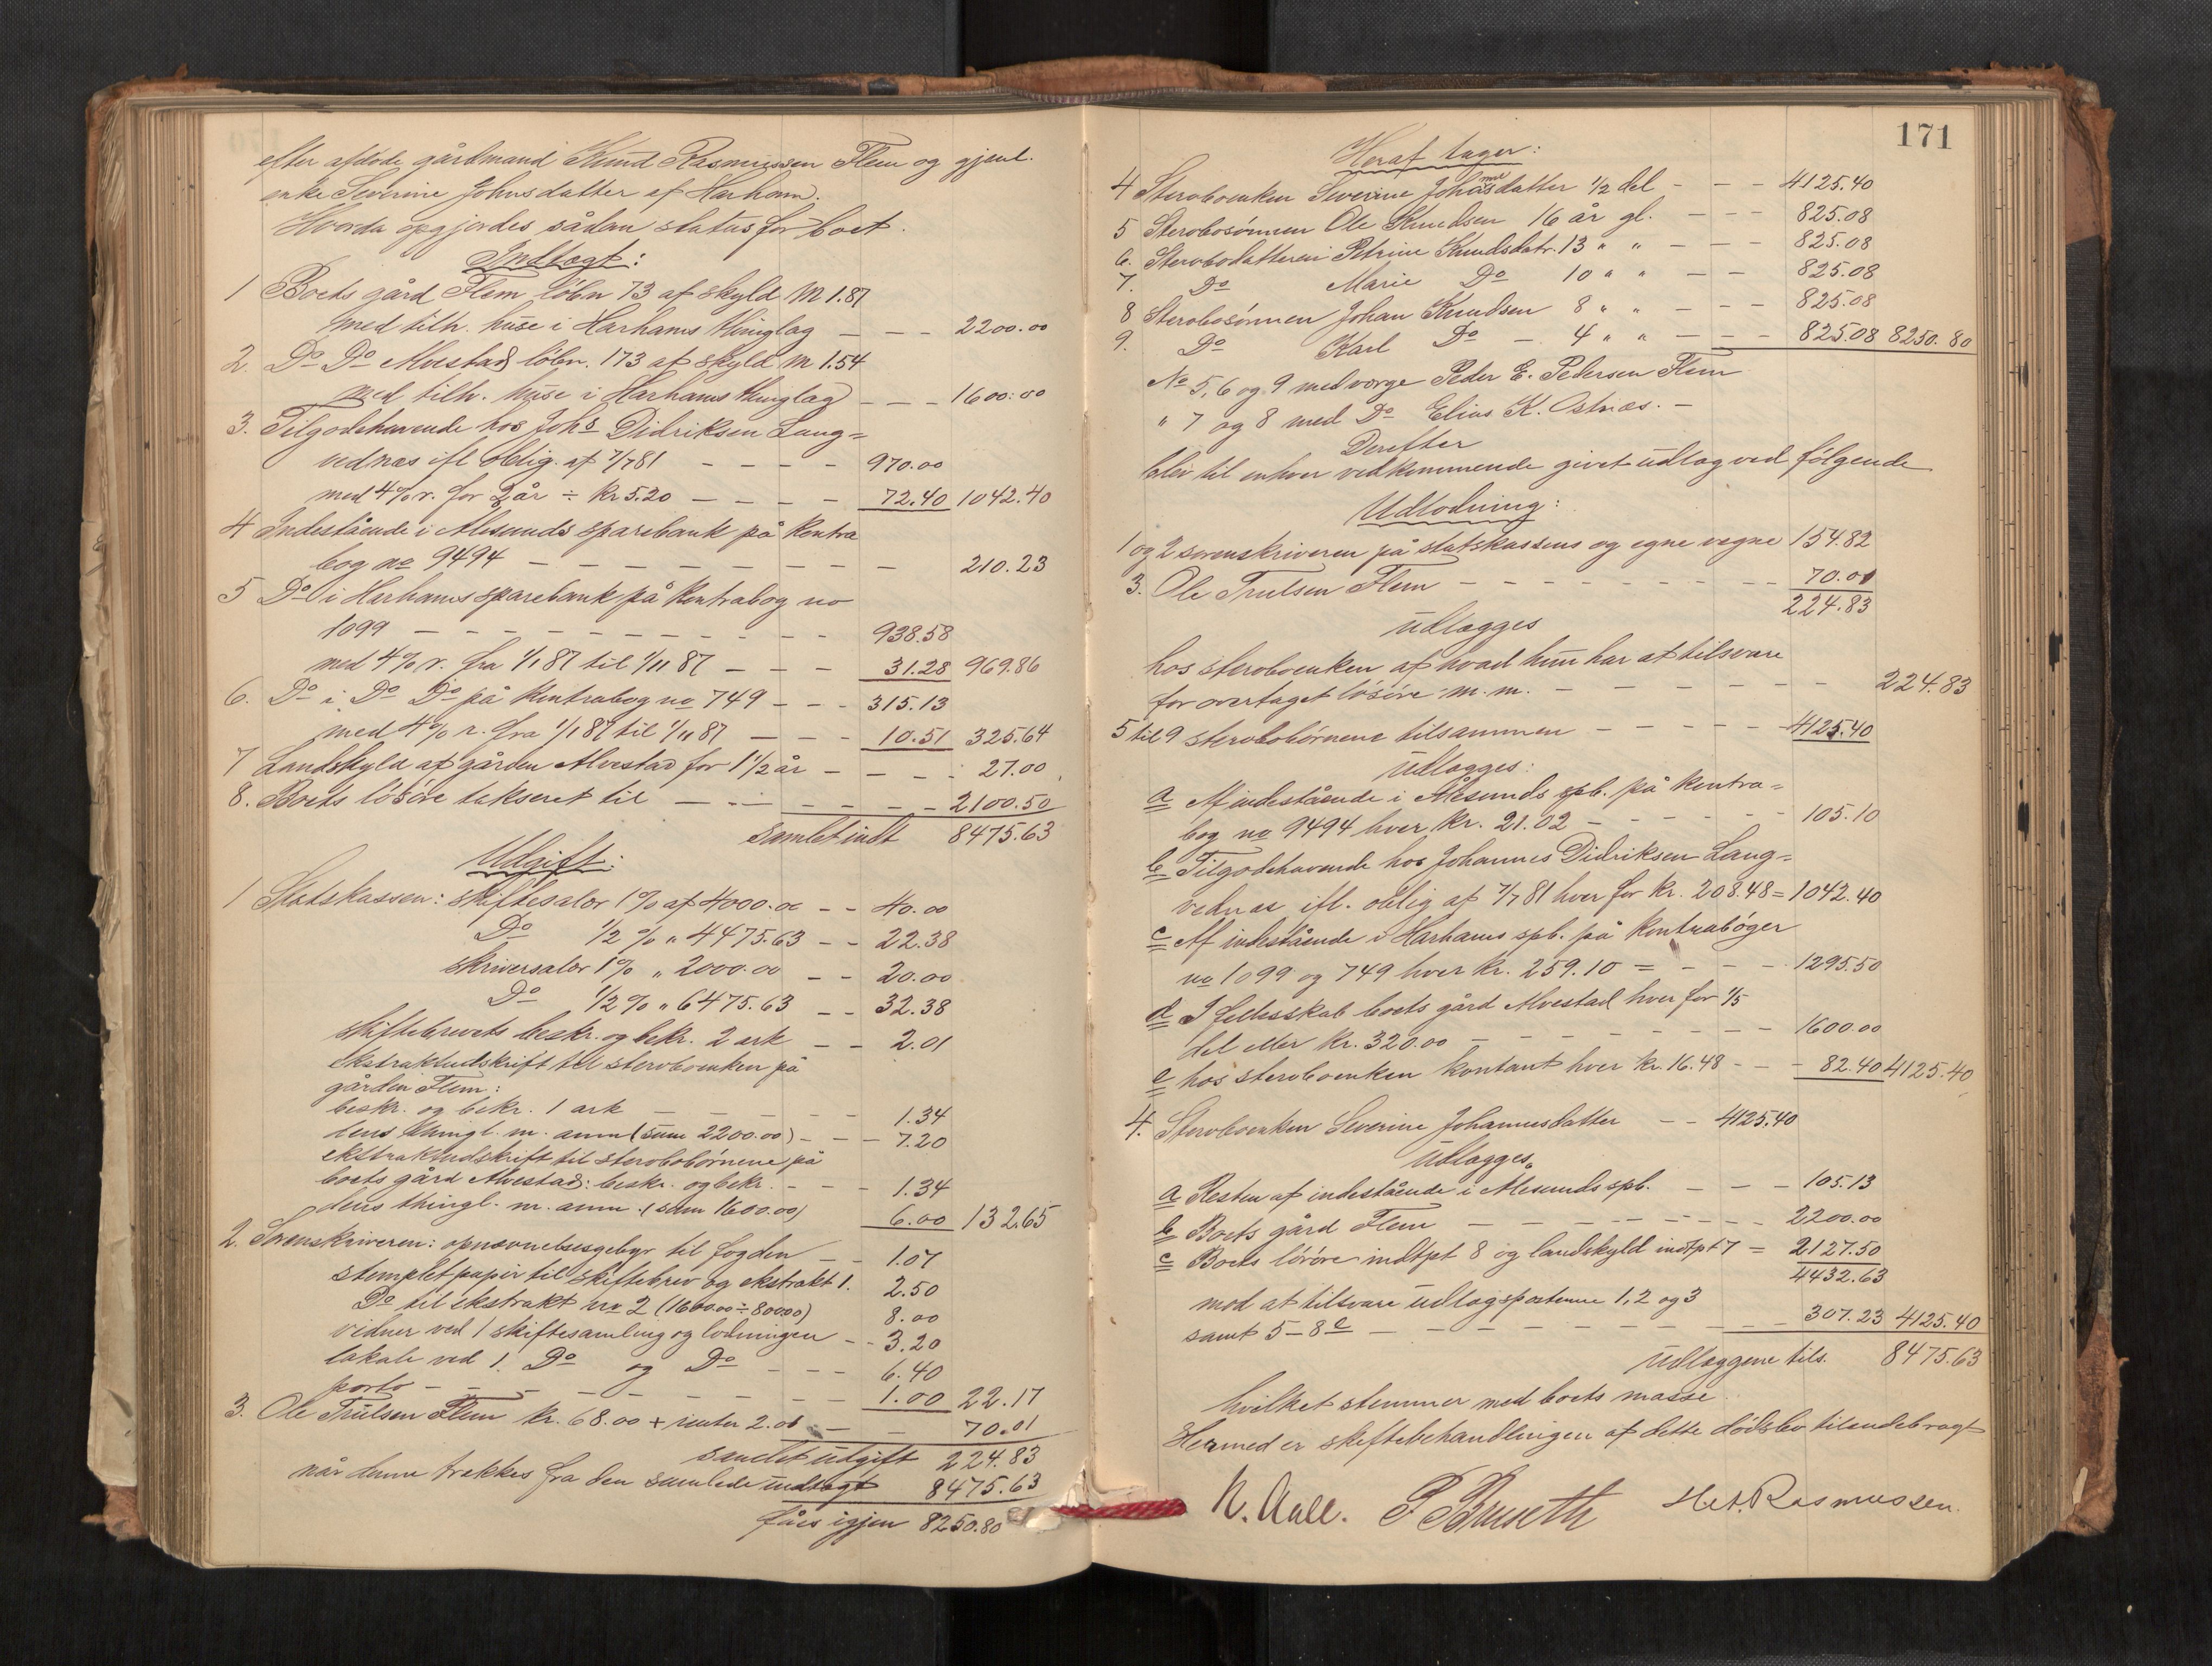 efter afdøde gårdmand Knud Rasmussen Flem og gjenl.
enke Severine Johnsdatter af Harham.
Hvorda opgjordes sådan status for boet.
Indtægt:
1 Boets gård Flem løbn 73 af skyld M 1.87
med tilh. huse i Harhams thinglag — — — 2200.00
2. Do Do Alvestad løbn. 173 af skyld M 1.54
med tilh. huse i Harhams thinglag — — — 1600.00
3. Tilgodehavende hos Johs Didriksen Lang=
vednæs ifl. oblig. af 7/7 81 — — — — 970.00
med 4% r. for 2 år ÷ kr 5.20 — — — — 72.40 1042.40
4 Indestående i Ålesunds sparebank på kontra
bog no 9494 — — — — — — — — — 210.23
5 Do i Harhams sparebank på kontrabog no
1099 — — — — — — — — — — 938.58
med 4% r. fra 1/1 87 til 1/11 87 — — — 31.28 969.86
6. Do i Do Do på kontrabog no 749 — — — 315.13
med 4% r. fra 1/1 87 til 1/11 87 — — — 10.51 325.64
7 Landskyld af gården Alvestad for 1 1/2 år — — — — 27.00
8. Boets løsøre takseret til — — — — — — — 2100.50
Samlet indt 8475.63
Udgift:
1 Statskassen: skiftesalær 1% af 4000.00 — — 40.00
Do 1/2 % " 4475.63 — — 22.38
skriversalær 1% " 2000.00 — — 20.00
Do 1/2 % " 6475.63 — — 32.38
skiftebrevets beskr. og bekr. 2 ark — — 2.01
ekstraktudskrift til sterboenken på
gården Flem:
beskr. og bekr. 1 ark — — — — — 1.34
dens thingl. m. anm (sum 2200.00) — — — 7.20
ekstraktudskrift til sterbobørnene på
boets gård Alvestad: beskr. og bekr. — — — 1.34
dens thingl. m. anm. (sum 1600.00) 6.00 132.65
2. Sorenskriveren: opnævnelsesgebyr til fogden — — 1.07
stemplet papir til skiftebrev og ekstrakt 1. 2.50
Do til ekstrakt no 2 (1600.00 ÷ 800.00) 8.00
vidner ved 1 skiftesamling og lodningen — — 3.20
lokale ved 1. Do og Do — — — 6.40
porto — — — — — — — — — 1.00 22.17
3. Ole Trulsen Flem kr. 68.00 + renter 2.01 — — 70.01
samlet udgift 224.83
når denne trækkes fra den samlede indtægt 8475.63
fåes igjen 8250.80
171
Heraf tager:
4 Sterboenken Severine Johannesdatter 1/2 del — — — 4125.40
5 Sterbosønnen Ole Knudsen 16 år gl. — — — 825.08
6. Sterbodatteren Petrine Knudsdatr. 13 " " — — — 825.08
7. Do Marie Do 10 " " — — 825.08
8 Sterbosønnen Johan Knudsen 8 " " — — — 825.08
9. Do Karl Do — 4 " " — — — 825.08 8250.80
No 5, 6 og 9 med værge Peder E. Pedersen Flem
" 7 og 8 med Do Elias K. Østnæs. —
Derefter
blev til enhver vedkommende givet udlæg ved følgende
Udlodning:
1 og 2 sorenskriveren på statskassens og egne vegne 154.82
3. Ole Trulsen Flem — — — — — — — — 70.01
224.83
udlægges
hos sterboenken af hvad hun har at tilsvare
for overtaget løsøre m. m. — — — — — — — 224.83
5 til 9 sterbobørnene tilsammen — — — — — 4125.40
udlægges:
a Af indestående i Ålesunds spb. på kontra=
bog no 9494 hver kr. 21.02 — — — — — 105.10
b Tilgodehavende hos Johannes Didriksen Lang=
vednæs ifl. oblig af 7/7 81 hver for kr. 208.48 = 1042.40
c Af indestående i Harhams spb. på kontrabøger
no 1099 og 749 hver kr. 259.10 = — — — 1295.50
d I fellesskab boets gård Alvestad hver for 1/5
del eller kr. 320.00 — — — — — — — 1600.00
e hos sterboenken kontant hver kr. 16.48 — — — 82.40 4125.40
4. Sterboenken Severine Johannesdatter — — 4125.40
udlægges
a Resten af indestående i Ålesunds spb. — — — 105.13
b Boets gård Flem — — — — — — — — 2200.00
c Boets løsøre indtpt 8 og landskyld indtpt 7 = 2127.50
4432.63
mod at tilsvare udlægsposterne 1, 2 og 3
samt 5–8 e — — — — — — — — — 307.23 4125.40
Udlæggene tils. 8475.63
hvilket stemmer med boets masse.
Hermed er skiftebehandlingen af dette dødsbo tilendebragt
N. Aall. P Bruseth Het. Rasmussen.